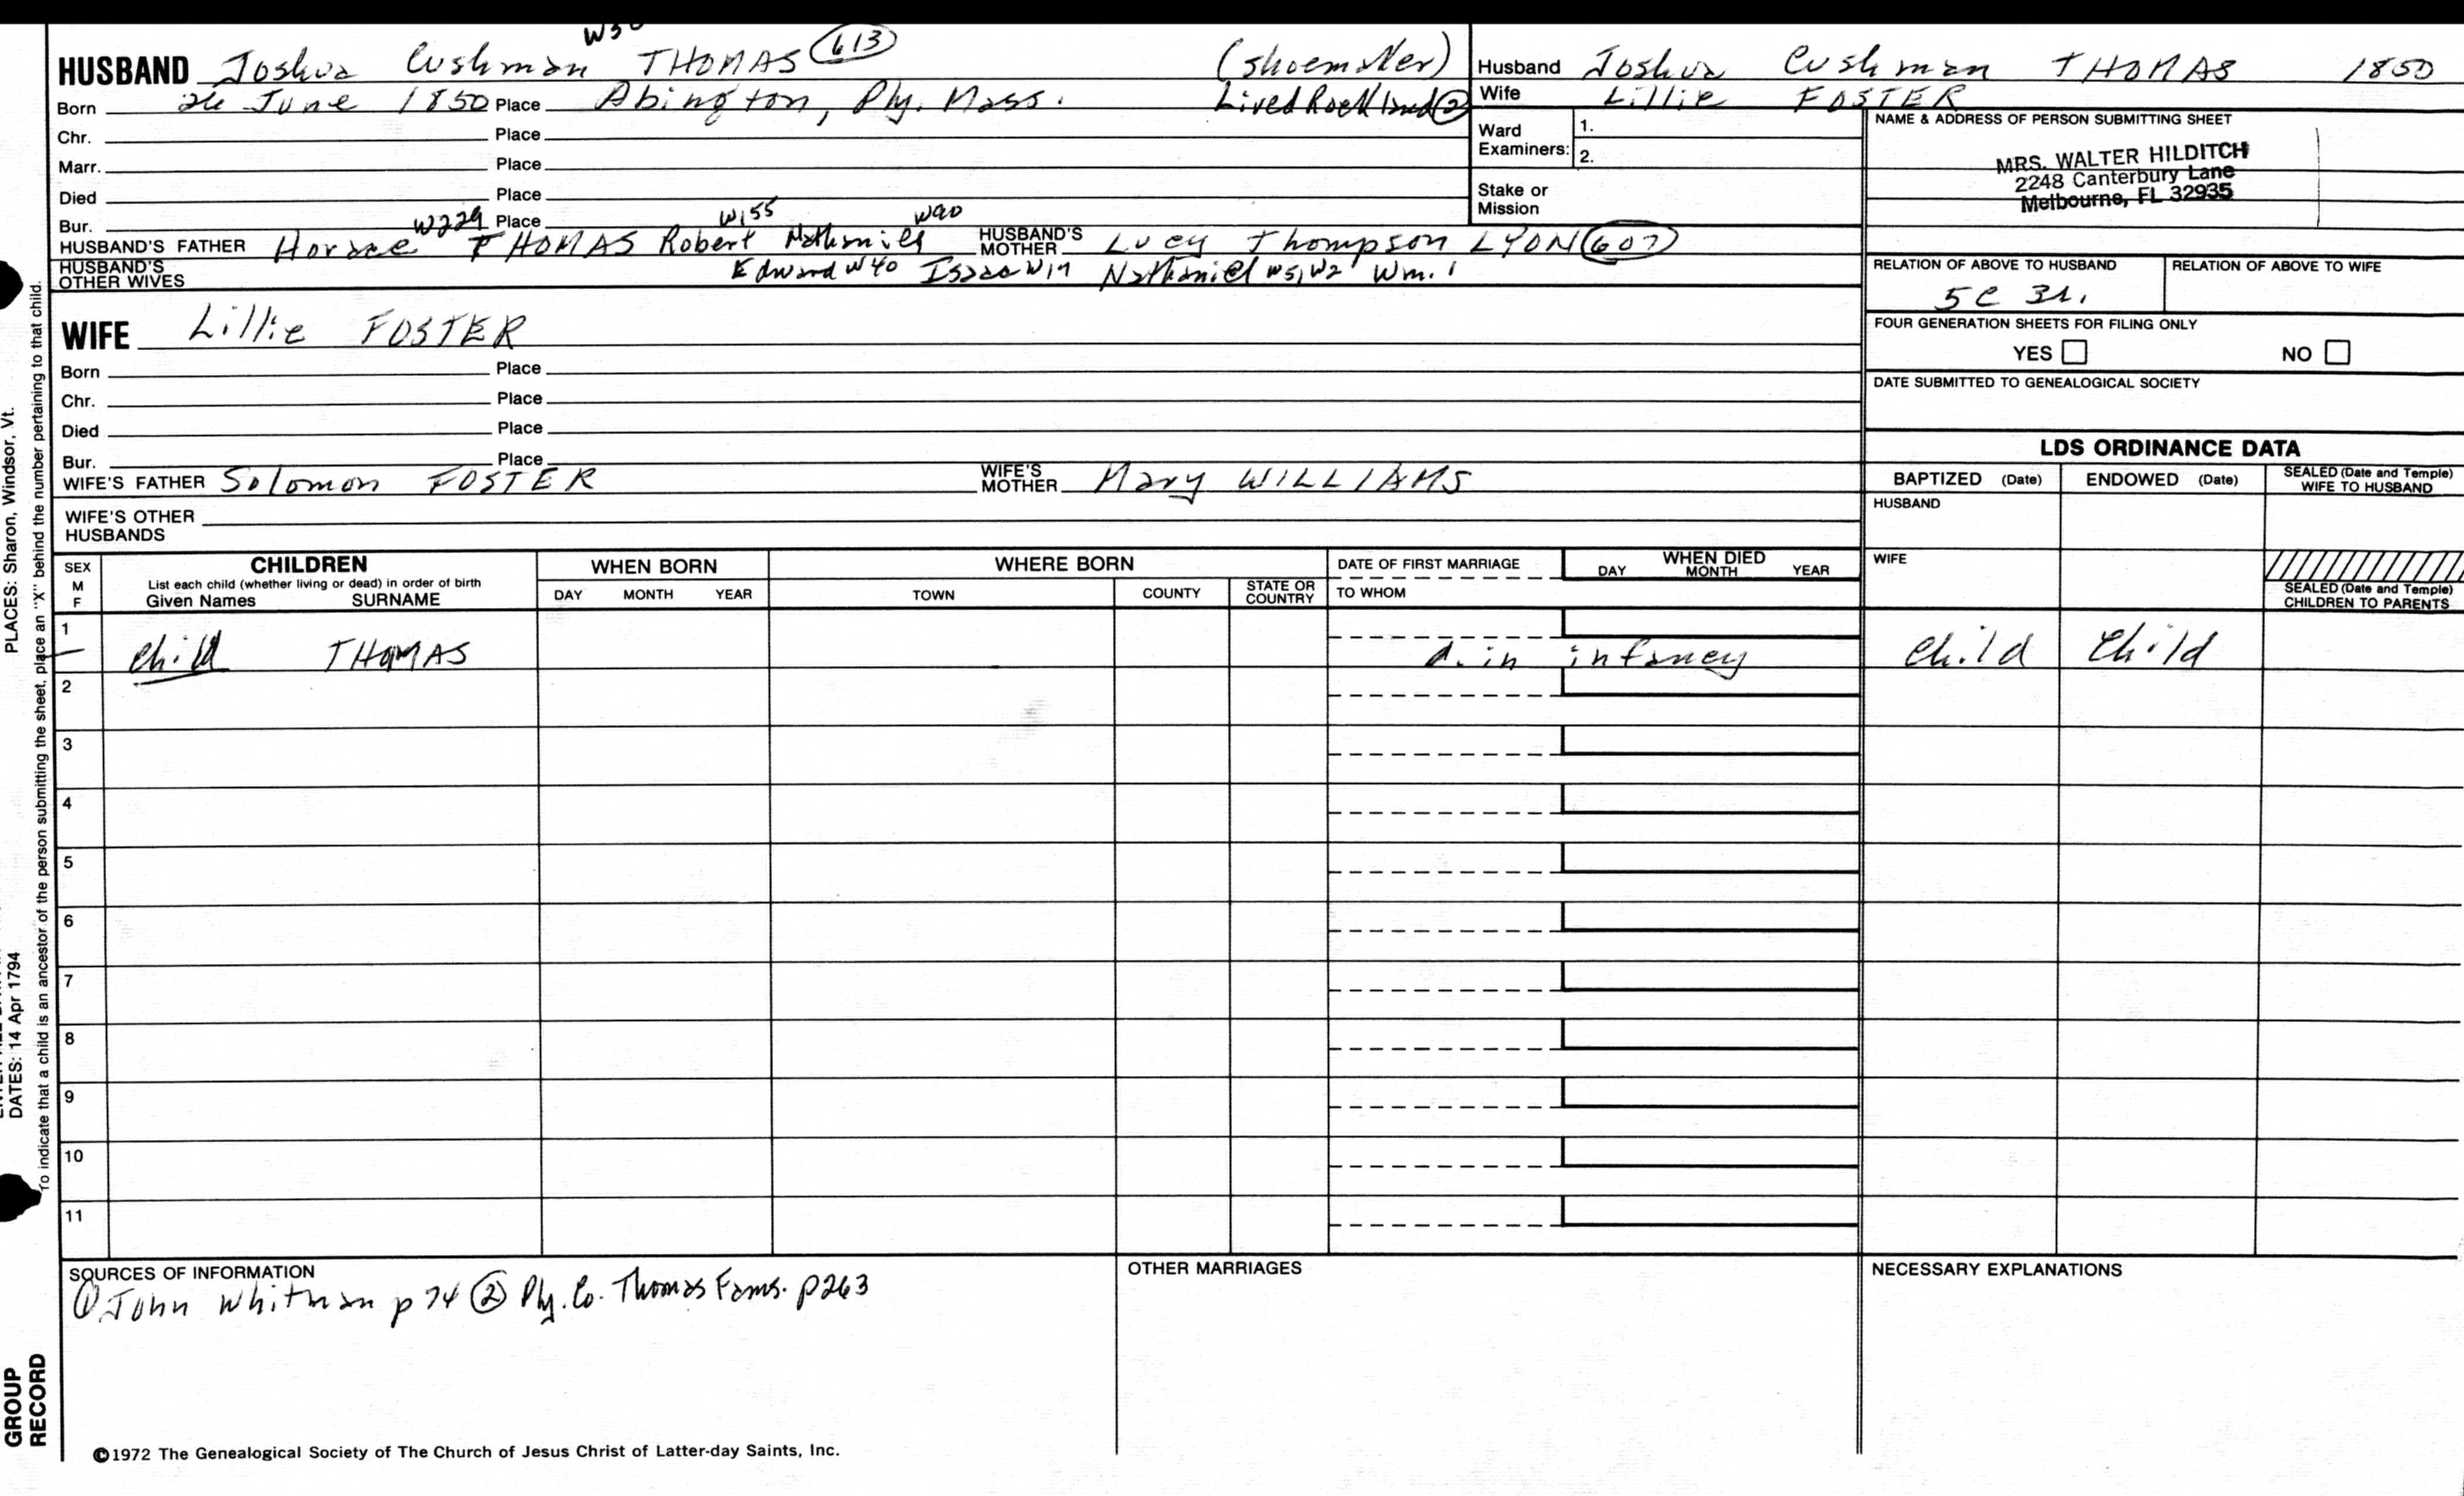 HUSBAND Joshua Cushman THOMAS (613) (shoemaker)
Born 26 June 1850 Place Abington, Ply. Mass. Lived Rockland (2)
Chr. Place
Marr. Place
Died Place
Bur. Place
W229 W155 W90
HUSBAND'S FATHER Horace THOMAS Robert Nathaniel HUSBAND'S MOTHER Lucy Thompson LYON (607)
HUSBAND'S OTHER WIVES Edward W40 Isaac W19 Nathaniel W5, W2 Wm. 1
WIFE Lillie FOSTER
Born Place
Chr. Place
Died Place
Bur. Place
WIFE'S FATHER Solomon FOSTER WIFE'S MOTHER Mary WILLIAMS
WIFE'S OTHER HUSBANDS
Husband Joshua Cushman THOMAS 1850
Wife Lillie FOSTER
Ward Examiners: 1.
2.
Stake or Mission
NAME & ADDRESS OF PERSON SUBMITTING SHEET
MRS. WALTER HILDITCH
2248 Canterbury Lane
Melbourne, FL 32935
RELATION OF ABOVE TO HUSBAND RELATION OF ABOVE TO WIFE
5C 3r.
FOUR GENERATION SHEETS FOR FILING ONLY
YES NO
DATE SUBMITTED TO GENEALOGICAL SOCIETY
LDS ORDINANCE DATA
BAPTIZED (Date) ENDOWED (Date) SEALED (Date and Temple) WIFE TO HUSBAND
HUSBAND
WIFE
SEALED (Date and Temple) CHILDREN TO PARENTS
SEX M F CHILDREN WHEN BORN WHERE BORN DATE OF FIRST MARRIAGE WHEN DIED
List each child (whether living or dead) in order of birth
Given Names SURNAME DAY MONTH YEAR TOWN COUNTY STATE OR COUNTRY TO WHOM DAY MONTH YEAR
1 child THOMAS d. in infancy Child Child
2
3
4
5
6
7
8
9
10
11
SOURCES OF INFORMATION
(1) John Whitman p 74 (2) Ply. Co. Thomas Fams. p263
OTHER MARRIAGES
NECESSARY EXPLANATIONS
©1972 The Genealogical Society of The Church of Jesus Christ of Latter-day Saints, Inc.
PLACES: Sharon, Windsor, Vt.
DATES: 14 Apr 1794
To indicate that a child is an ancestor of the person submitting the sheet, place an "X" behind the number pertaining to that child.
GROUP
RECORD